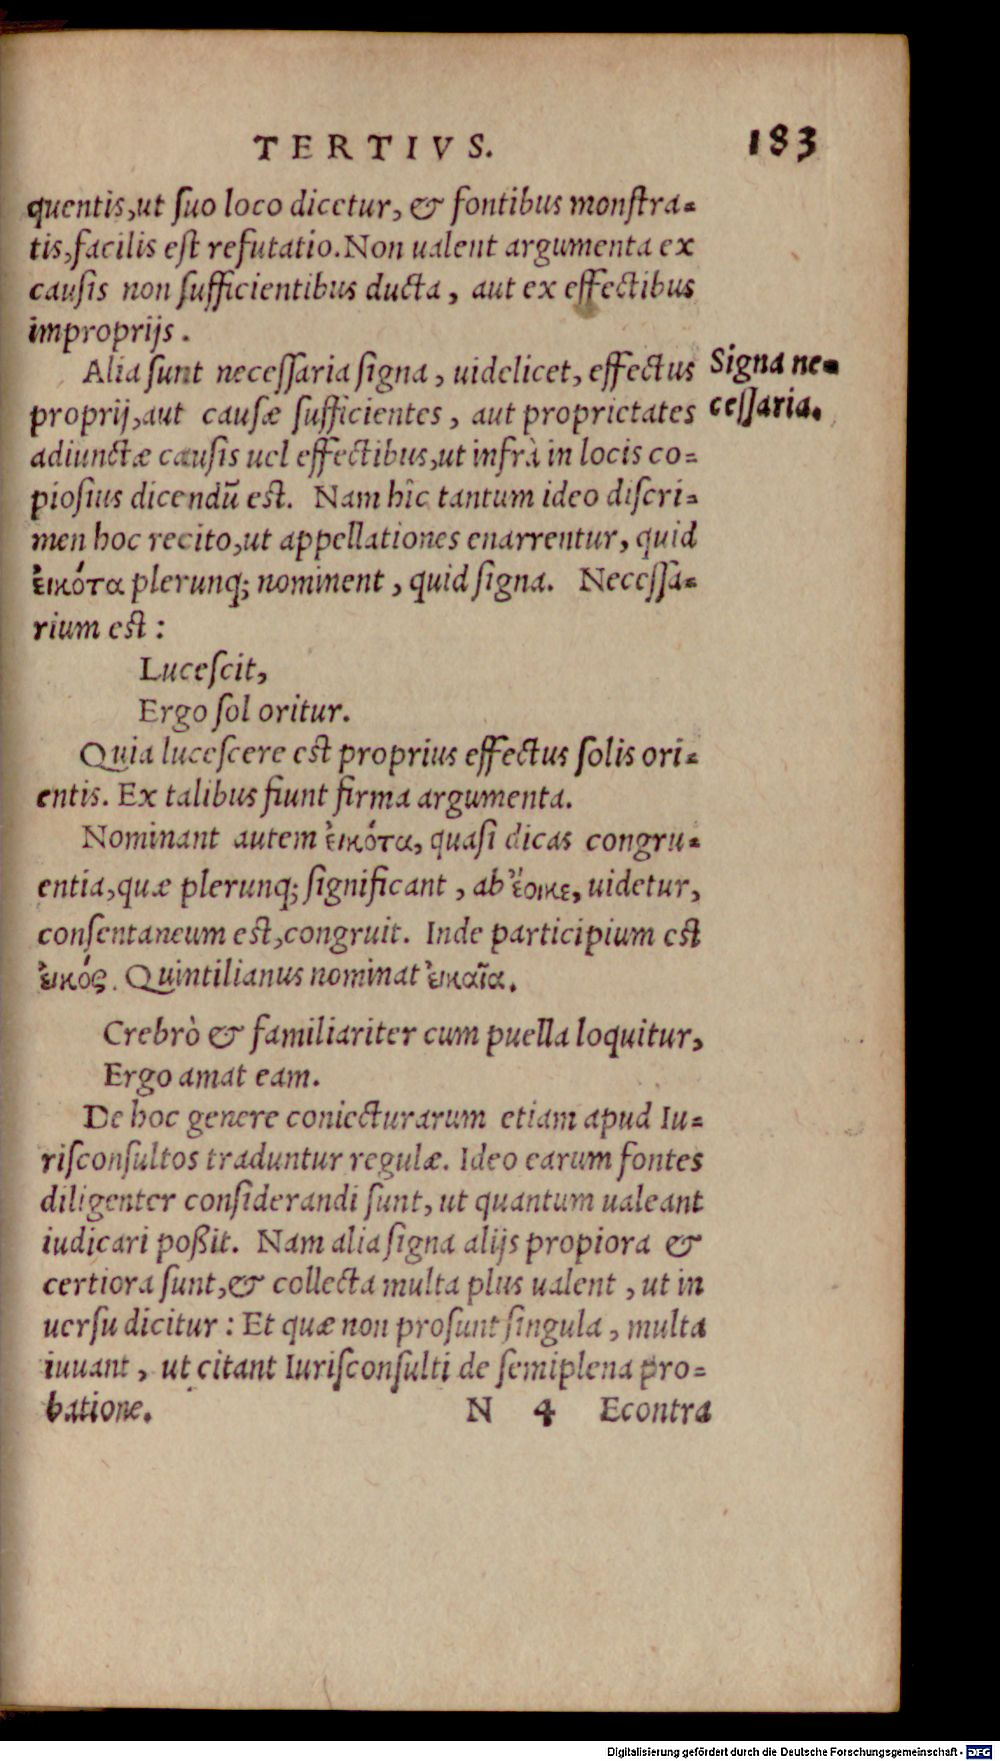 TERTIVS. 183
quentis,ut ſuo loco dicetur, & fontibus monſtra-
tis,facilis eſt refutatio.Non ualent argumenta ex
cauſis non ſufficientibus ducta, aut ex effectibus
improprijs.
Alia ſunt neceſſaria ſigna, uidelicet, effectus
Signa ne-
proprij,aut cauſæ ſufficientes, aut proprietates
ceſſaria.
adiunctæ cauſis uel effectibus,ut infrà in locis co-
pioſius dicendũ eſt. Nam hîc tantum ideo diſcri-
men hoc recito,ut appellationes enarrentur, quid
ἐικότα plerunq; nominent, quid ſigna. Neceſſa-
rium eſt:
Luceſcit,
Ergo ſol oritur.
Quia luceſcere eſt proprius effectus ſolis ori-
entis. Ex talibus fiunt firma argumenta.
Nominant autem ἐικότα, quaſi dicas congru-
entia,quæ plerunq; ſignificant, ab ἔοικε, uidetur,
conſentaneum eſt,congruit. Inde participium eſt
ἐικός. Quintilianus nominat ἐικαῖα.
Crebrò & familiariter cum puella loquitur,
Ergo amat eam.
De hoc genere coniecturarum etiam apud Iu-
riſconſultos traduntur regulæ. Ideo earum fontes
diligenter conſiderandi ſunt, ut quantum ualeant
iudicari poßit. Nam alia ſigna alijs propiora &
certiora ſunt,& collecta multa plus ualent, ut in
uerſu dicitur: Et quæ non proſunt ſingula, multa
iuuant, ut citant Iuriſconſulti de ſemiplena pro-
batione. N 4 Econtra
Digitalisierung gefördert durch die Deutsche Forschungsgemeinschaft - DFG